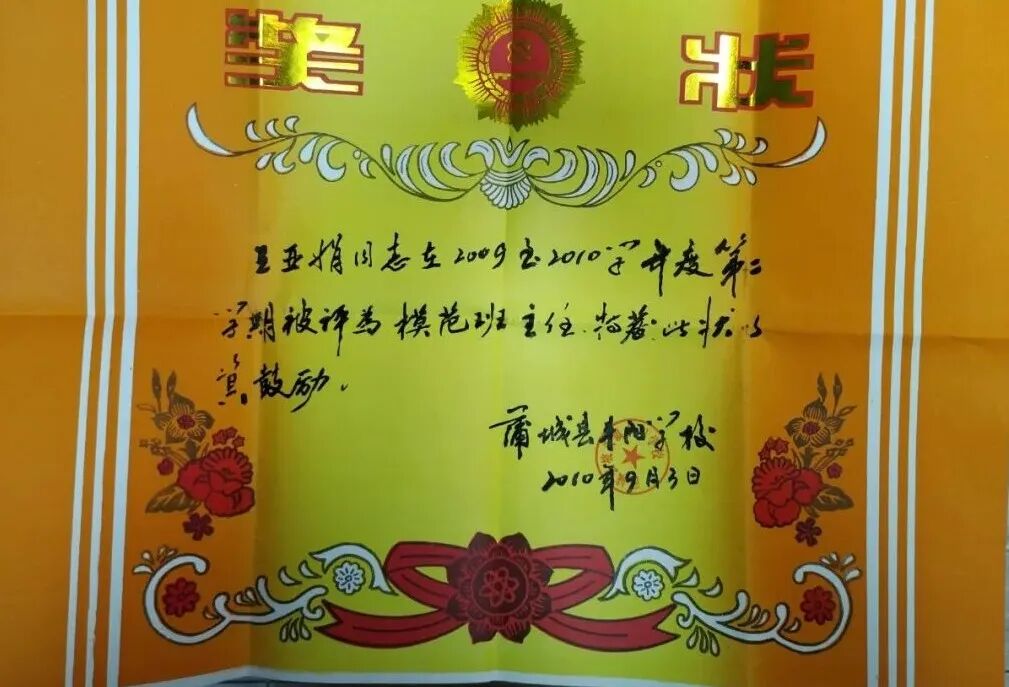 奖状
王亚娟同志在2009至2010学年度第二
学期被评为模范班主任.特发此状以
资鼓励。
蒲城县 阳学校
2010年9月3日